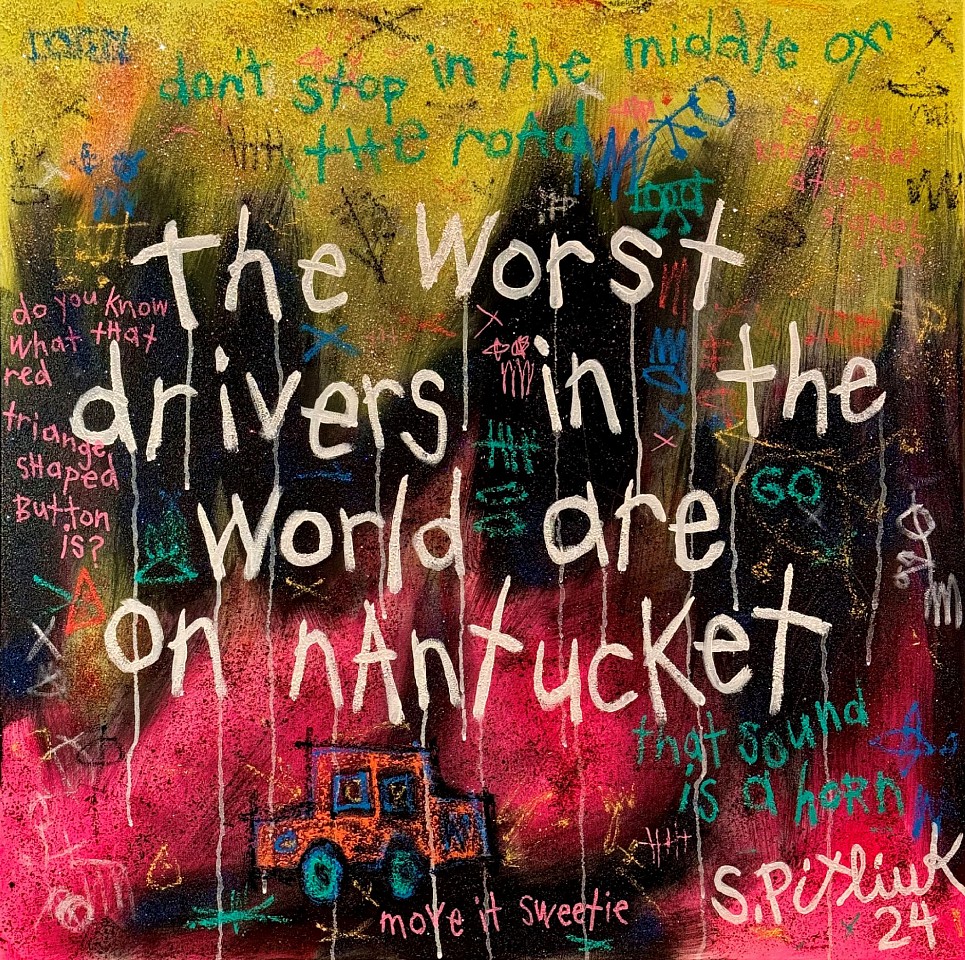 don't stop in the middle of
the road
do you
know what
a turn
signal
is?
the worst
drivers in the
world are
on nAntucket
do you know
what that
red
triange
shaped
Button
is?
GO
that sound
is a horn
move it sweetie
S.Pitliuk
24